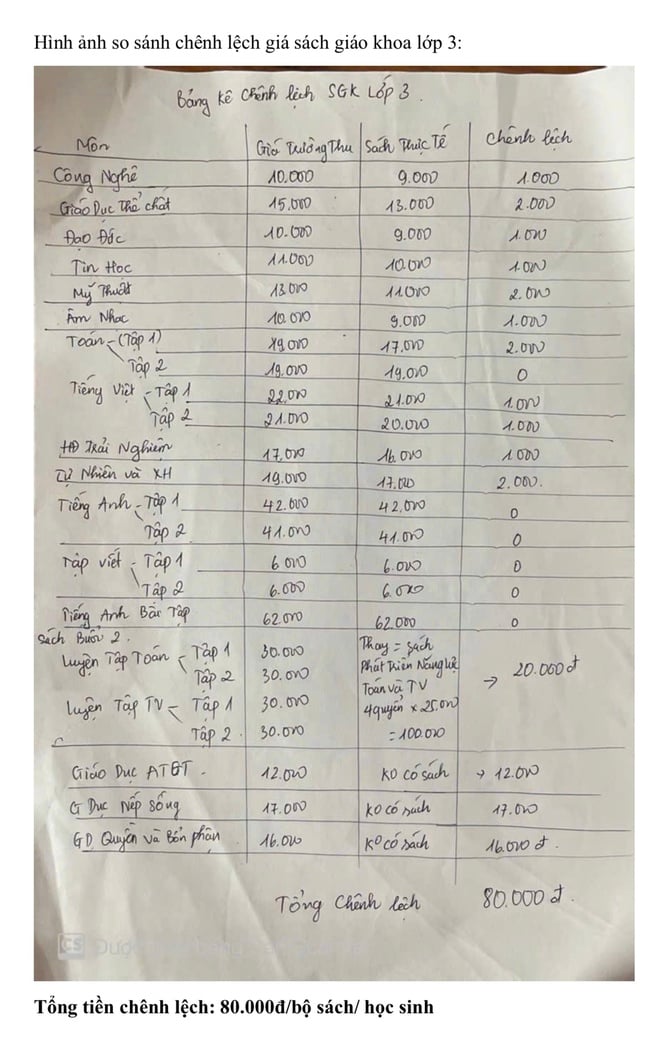 Hình ảnh so sánh chênh lệch giá sách giáo khoa lớp 3:
Bảng kê chênh lệch SGK Lớp 3.
Môn Giá Trường Thu Sách Thực Tế Chênh lệch
Công Nghệ 10.000 9.000 1.000
Giáo Dục Thể chất 15.000 13.000 2.000
Đạo Đức 10.000 9.000 1.000
Tin Học 11.000 10.000 1.000
Mỹ Thuật 13.000 11.000 2.000
Âm Nhạc 10.000 9.000 1.000
Toán - (Tập 1) 19.000 17.000 2.000
Tập 2 19.000 19.000 0
Tiếng Việt - Tập 1 22.000 21.000 1.000
Tập 2 21.000 20.000 1.000
HĐ Trải Nghiệm 17.000 16.000 1.000
Tự Nhiên và XH 19.000 17.000 2.000.
Tiếng Anh - Tập 1 42.000 42.000 0
Tập 2 41.000 41.000 0
Tập viết - Tập 1 6.000 6.000 0
Tập 2 6.000 6.000 0
Tiếng Anh Bài Tập 62.000 62.000 0
Sách Buổi 2.
Luyện Tập Toán - Tập 1 30.000 Thay = sách
Tập 2 30.000 Phát Triển Năng lực → 20.000đ
Luyện Tập TV - Tập 1 30.000 Toán và TV
4 quyển x 25.000
Tập 2. 30.000 = 100.000
Giáo Dục ATGT. 12.000 KO có sách → 12.000
G Dục Nếp Sống 17.000 KO có sách 17.000
GD Quyền và Bổn phận 16.000 KO có sách 16.000 đ.
Tổng Chênh lệch 80.000 đ.
CS
Tổng tiền chênh lệch: 80.000đ/bộ sách/ học sinh